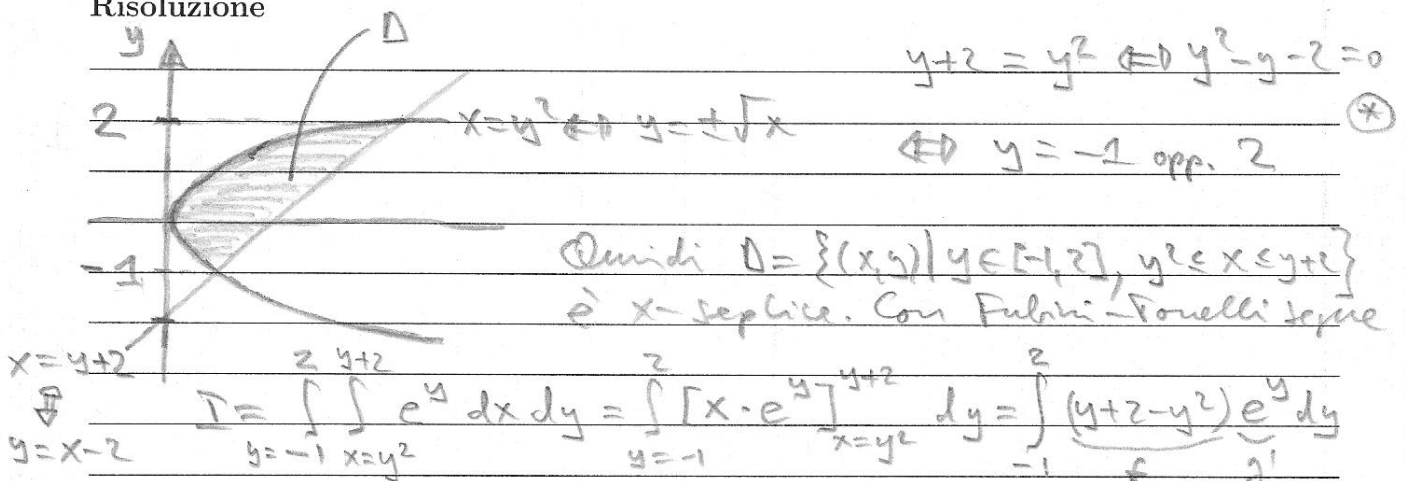 Risoluzione
y D
y+2 = y² ⇔ y²-y-2=0
2 x=y² ⇔ y=±√x (*)
⇔ y=-1 opp. 2
-1 Quindi D={(x,y)| y∈[-1,2], y²≤x≤y+2}
è x-seplice. Con Fubini-Tonelli segue
x=y+2
⇕
y=x-2
I = ∫_{y=-1}^{2} ∫_{x=y²}^{y+2} e^y dx dy = ∫_{y=-1}^{2} [x·e^y]_{x=y²}^{y+2} dy = ∫_{-1}^{2} (y+2-y²) e^y dy
f g'